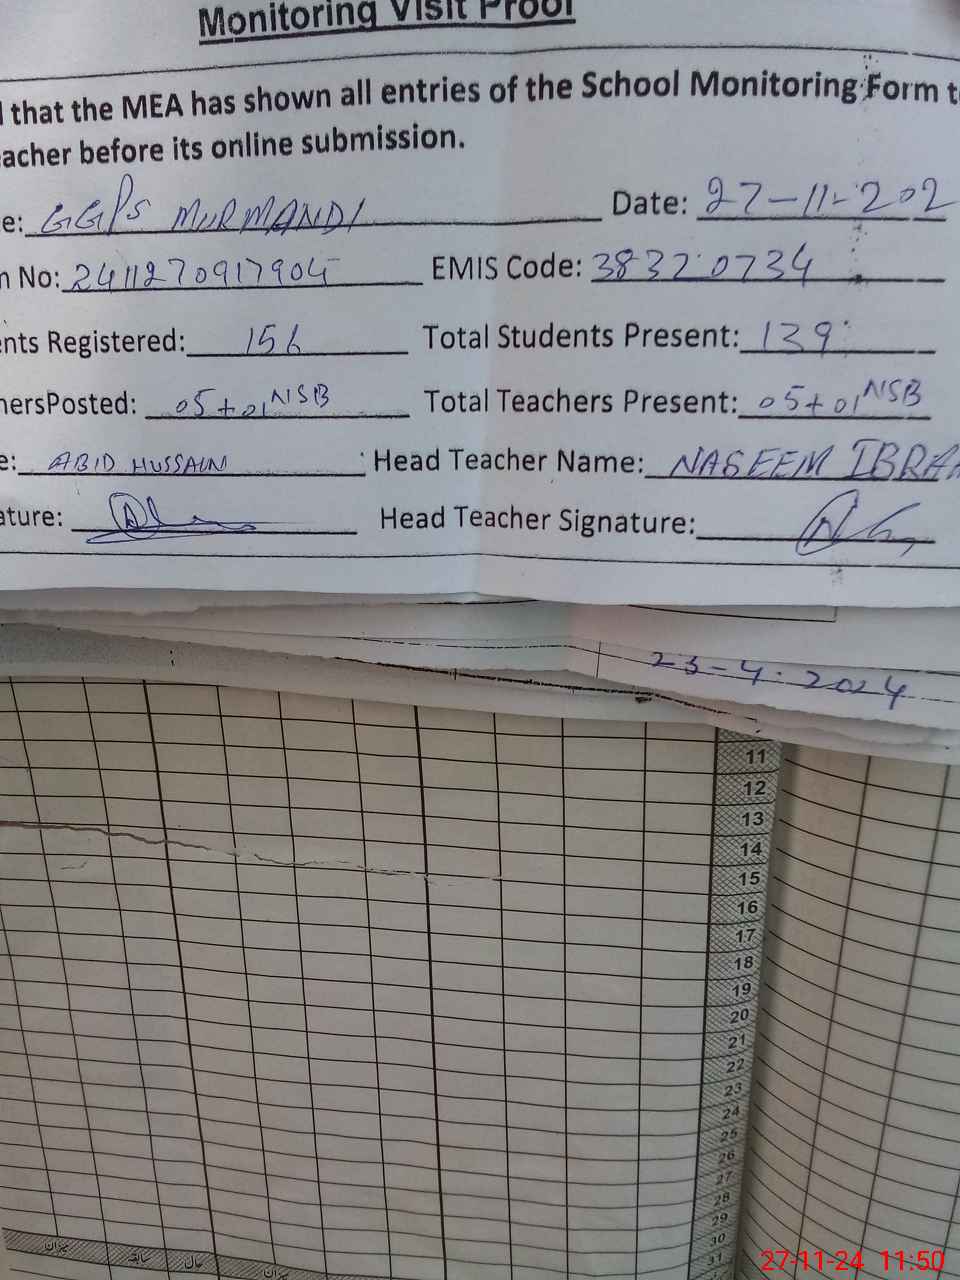 Monitoring Visit Proof
that the MEA has shown all entries of the School Monitoring Form t
eacher before its online submission.
e: GGPS MURMANDI Date: 27-11-202
n No: 2411270917904 EMIS Code: 38320734
ents Registered: 156 Total Students Present: 139
hersPosted: 05+01 NSB Total Teachers Present: 05+01 NSB
e: ABID HUSSAIN Head Teacher Name: NASEEM IBRA
ature: Head Teacher Signature:
23-4-2024
11
12
13
14
15
16
17
18
19
20
21
22
23
24
25
26
27
28
29
30
31
میزان سابقہ حال میزان
27-11-24 11:50